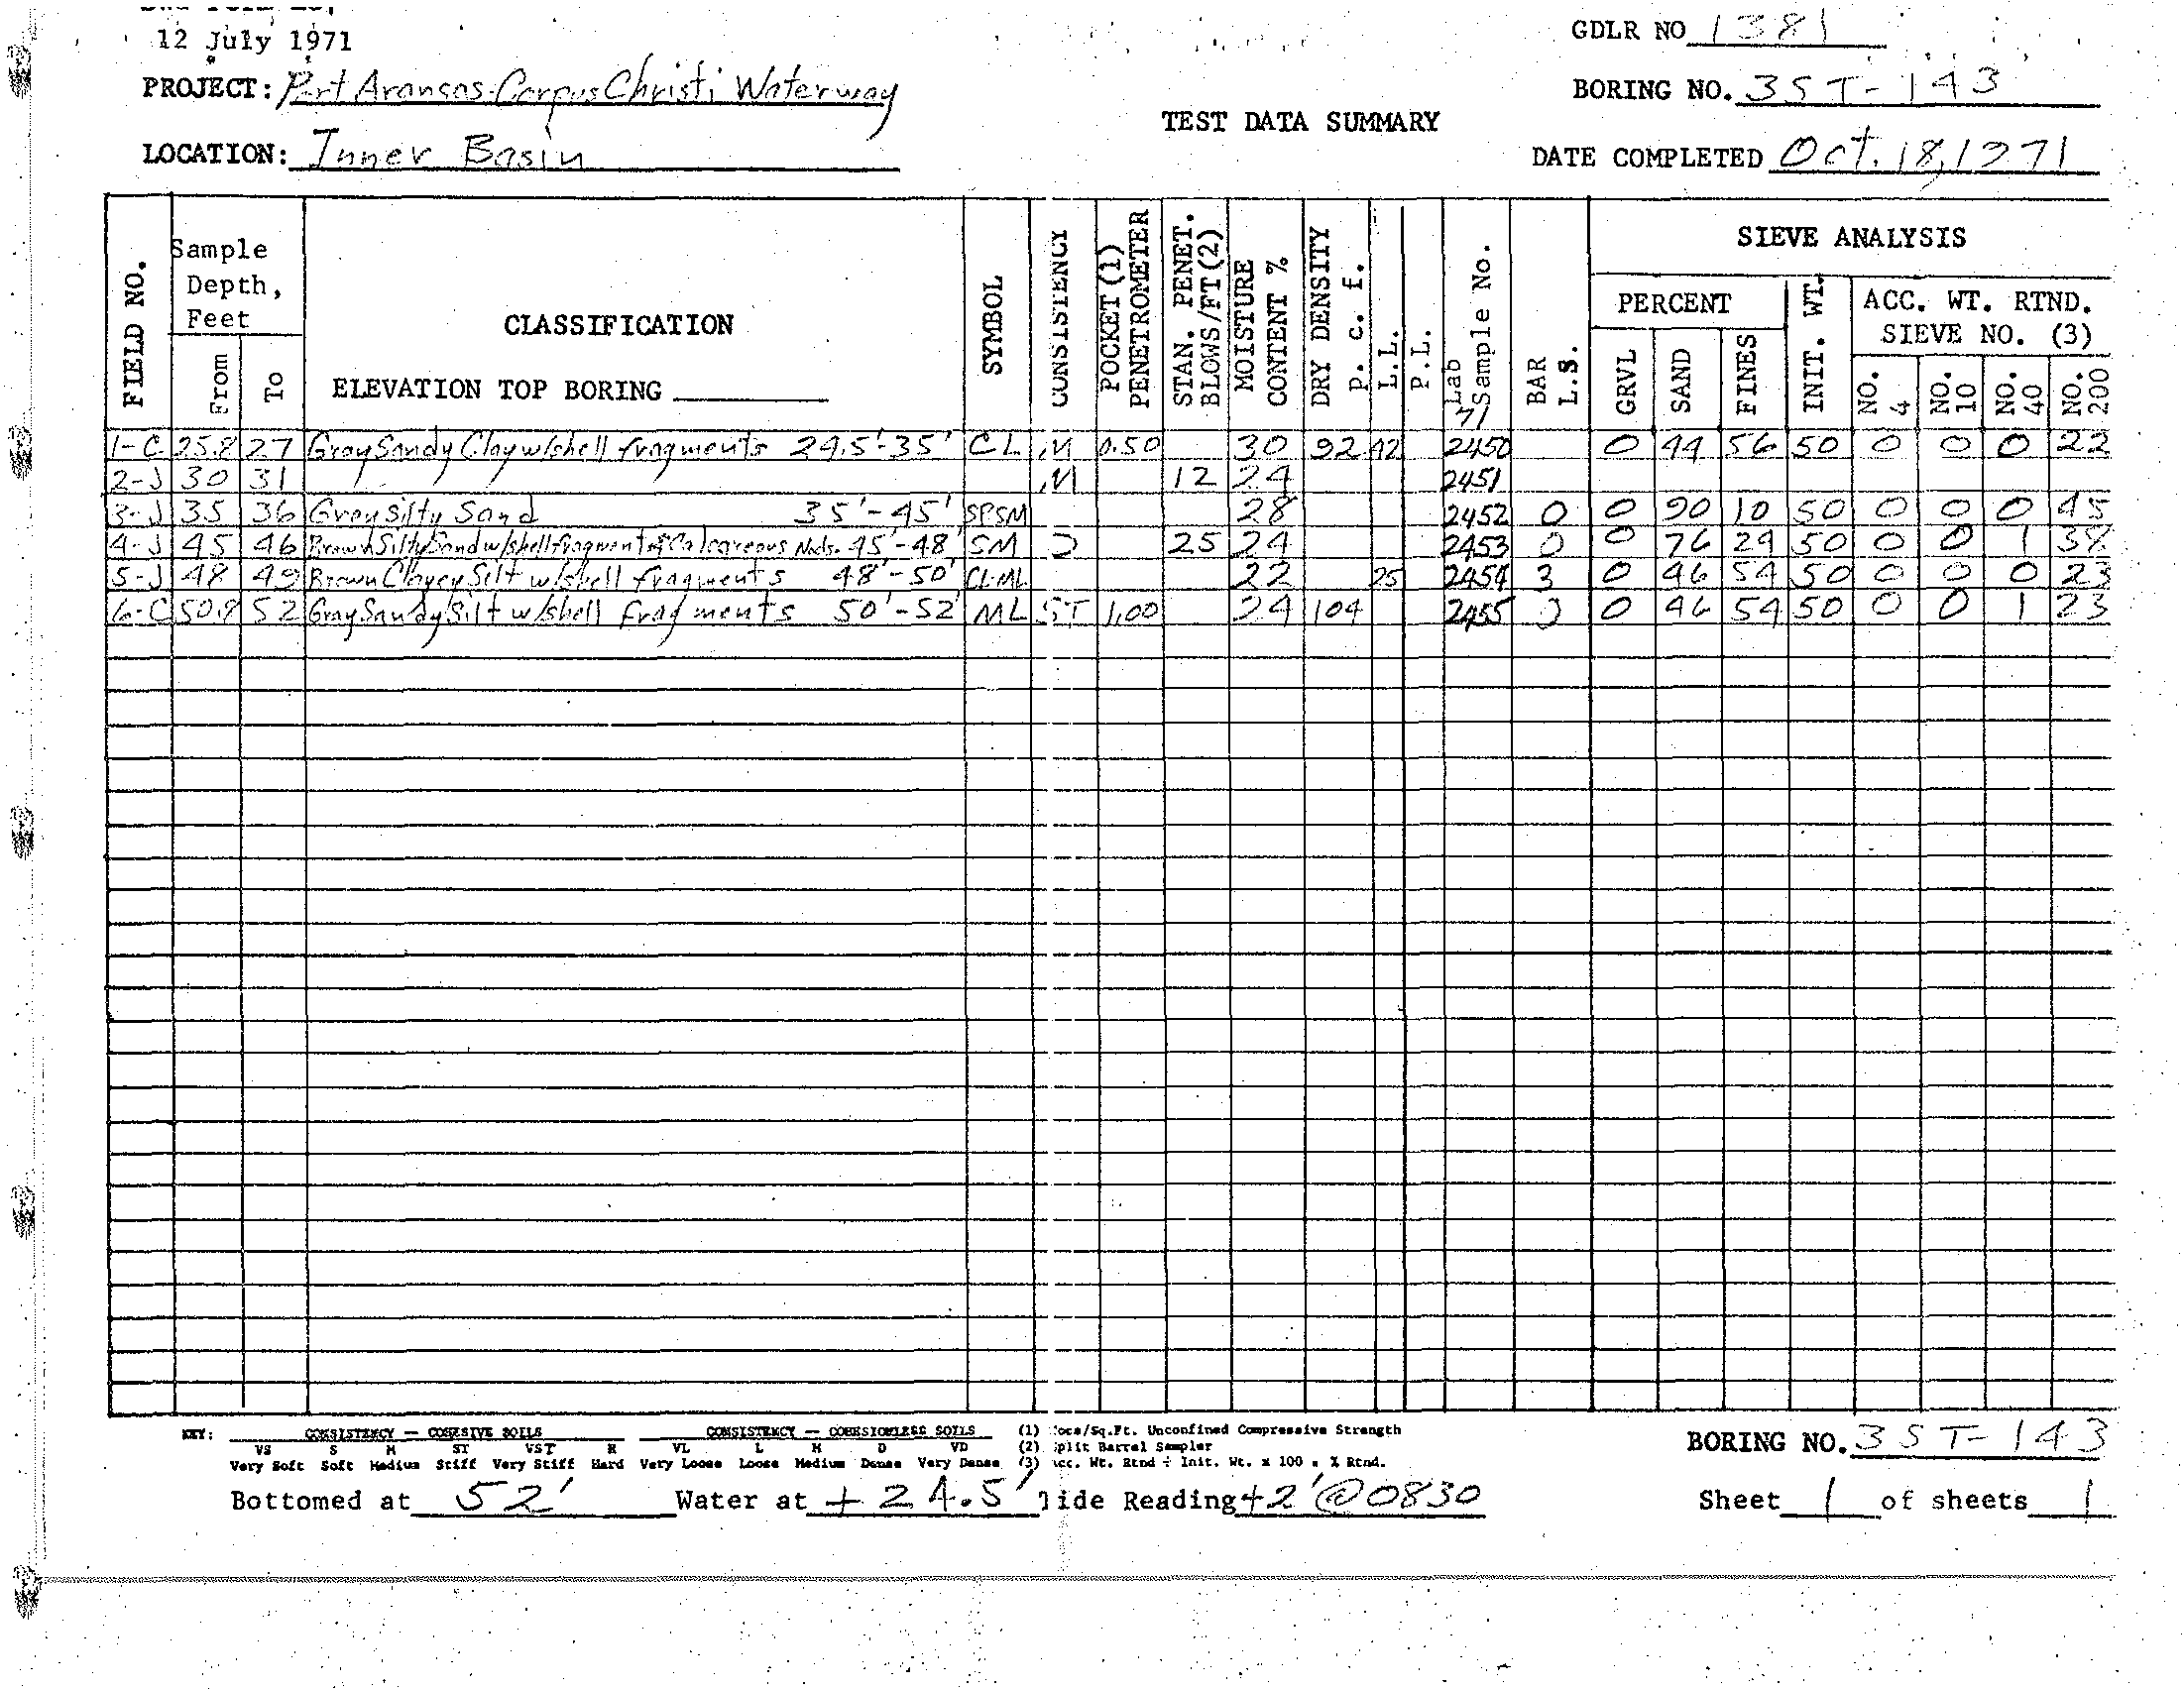 12 July 1971
GDLR NO 1381
PROJECT: Port Aransas-Corpus Christi Waterway
BORING NO. 3ST-143
TEST DATA SUMMARY
LOCATION: Inner Basin
DATE COMPLETED Oct. 18, 1971
FIELD NO.
Sample Depth, Feet
From
To
CLASSIFICATION
ELEVATION TOP BORING
SYMBOL
CONSISTENCY
POCKET (1) PENETROMETER
STAN. PENET. BLOWS/FT (2)
MOISTURE CONTENT %
DRY DENSITY p. c. f.
L.L.
P.L.
Lab Sample No.
71
BAR L.S.
SIEVE ANALYSIS
PERCENT
GRVL
SAND
FINES
INIT. WT.
ACC. WT. RTND.
SIEVE NO. (3)
NO. 4
NO. 10
NO. 40
NO. 200
1-C 25.8 27 Gray Sandy Clay w/shell fragments 24.5'-35' CL M 0.50 30 92 42 2450 0 44 56 50 0 0 0 22
2-J 30 31 M 12 24 2451
3-J 35 36 Gray Silty Sand 35'-45' SPSM 28 2452 0 0 90 10 50 0 0 0 45
4-J 45 46 Brown Silty Sand w/shell fragments & Calcareous Nods. 45'-48' SM D 25 24 2453 0 0 76 24 50 0 0 1 38
5-J 48 49 Brown Clayey Silt w/shell fragments 48'-50' CL-ML 22 25 2454 3 0 46 54 50 0 0 0 23
6-C 50.8 52 Gray Sandy Silt w/shell fragments 50'-52' ML ST 1.00 24 104 2455 0 46 54 50 0 0 1 23
KEY: CONSISTENCY — COHESIVE SOILS CONSISTENCY — COHESIONLESS SOILS (1) Tons/Sq.Ft. Unconfined Compressive Strength
VS S M ST VST H VL L M D VD (2) Split Barrel Sampler
Very Soft Soft Medium Stiff Very Stiff Hard Very Loose Loose Medium Dense Very Dense (3) Acc. Wt. Rtnd ÷ Init. Wt. x 100 = % Rtnd.
BORING NO. 3ST-143
Bottomed at 52' Water at +24.5' Tide Reading +2' @ 0830
Sheet 1 of sheets 1